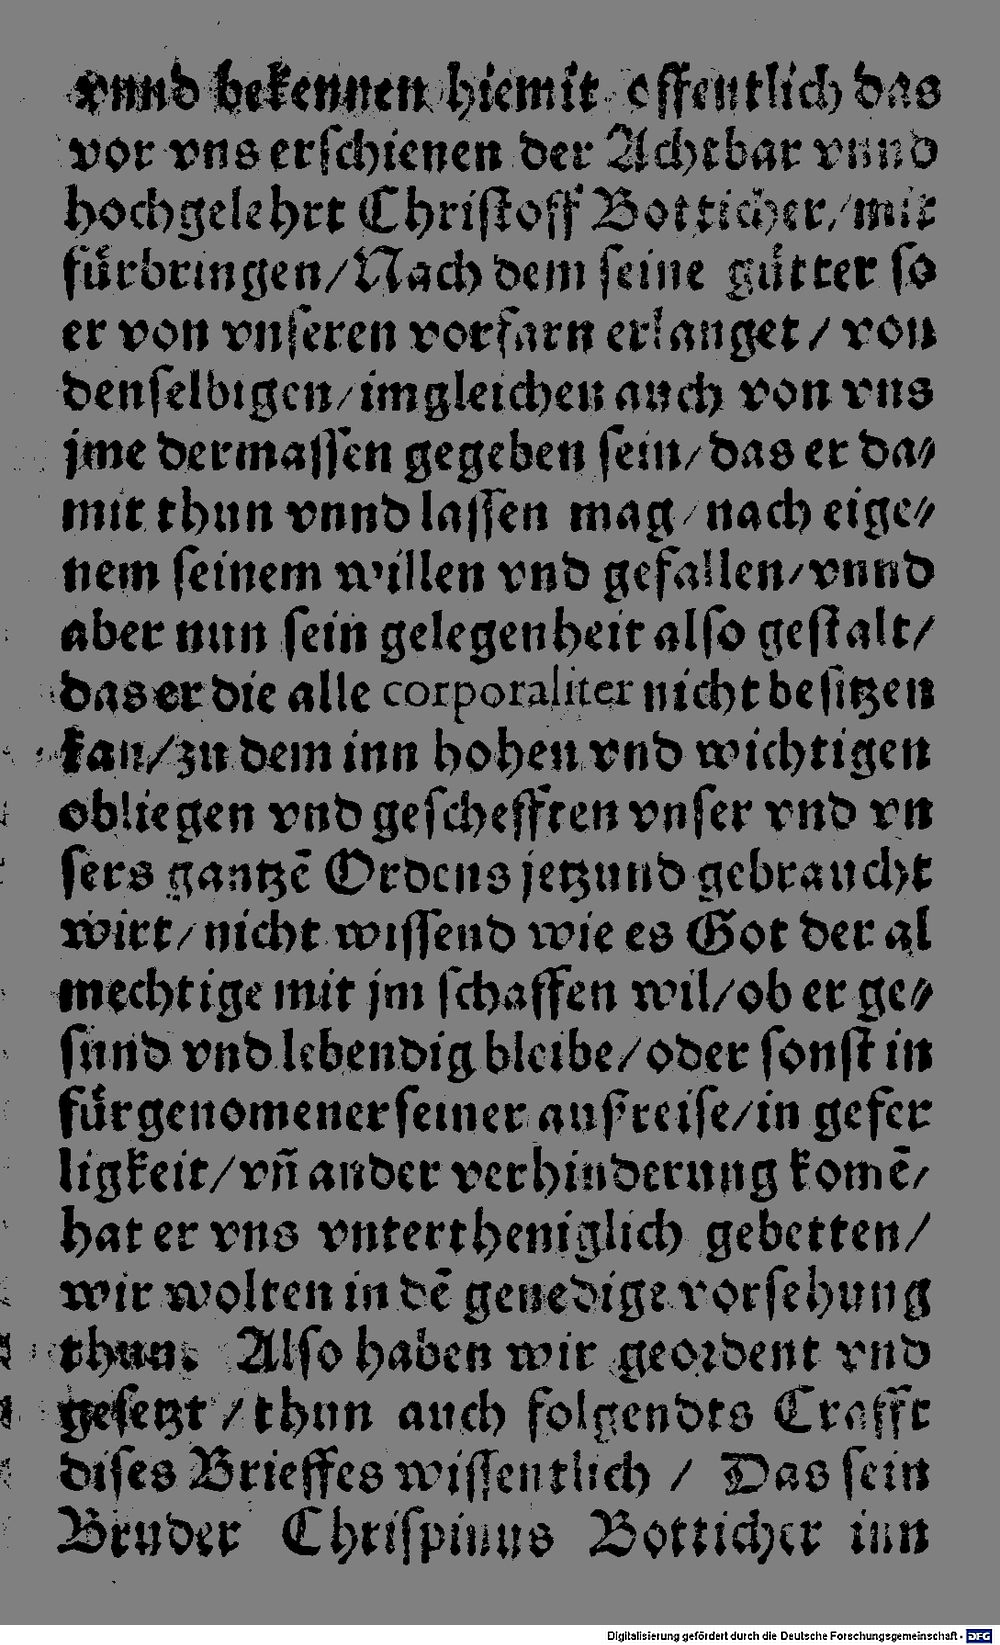 vnnd bekennen hiemit offentlich das
vor vns erschienen der Achtbar vnnd
hochgelehrt Christoff Botticher/mit
fuͤrbringen/Nach dem seine guͤtter so
er von vnseren vorfarn erlanget / von
denselbigen/imgleichen auch von vns
jme dermassen gegeben sein/das er da⸗
mit thun vnnd lassen mag/nach eige⸗
nem seinem willen vnd gefallen/vnnd
aber nun sein gelegenheit also gestalt/
das er die alle corporaliter nicht besitzen
kan/zu dem inn hohen vnd wichtigen
obliegen vnd geschefften vnser vnd vn
sers gantzē Ordens jetzund gebraucht
wirt/nicht wissend wie es Got der al
mechtige mit jm schaffen wil/ob er ge⸗
sund vnd lebendig bleibe/oder sonst in
fuͤrgenomener seiner außreise/in gefer
ligkeit/vñ ander verhinderung komē/
hat er vns vntertheniglich gebetten/
wir wolten in dē genedige vorsehung
thun. Also haben wir geordent vnd
gesetzt / thun auch folgendts Crafft
dises Brieffes wissentlich / Das sein
Bruder Chrispinus Botticher inn
Digitalisierung gefördert durch die Deutsche Forschungsgemeinschaft - DFG